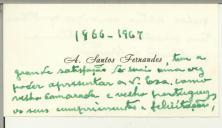 1866-1967
A. Santos Fernandes, tem a
grande satisfação de mais uma vez
poder apresentar a V. Exa, como
velho camarada e velho português,
os seus cumprimentos e felicitações,